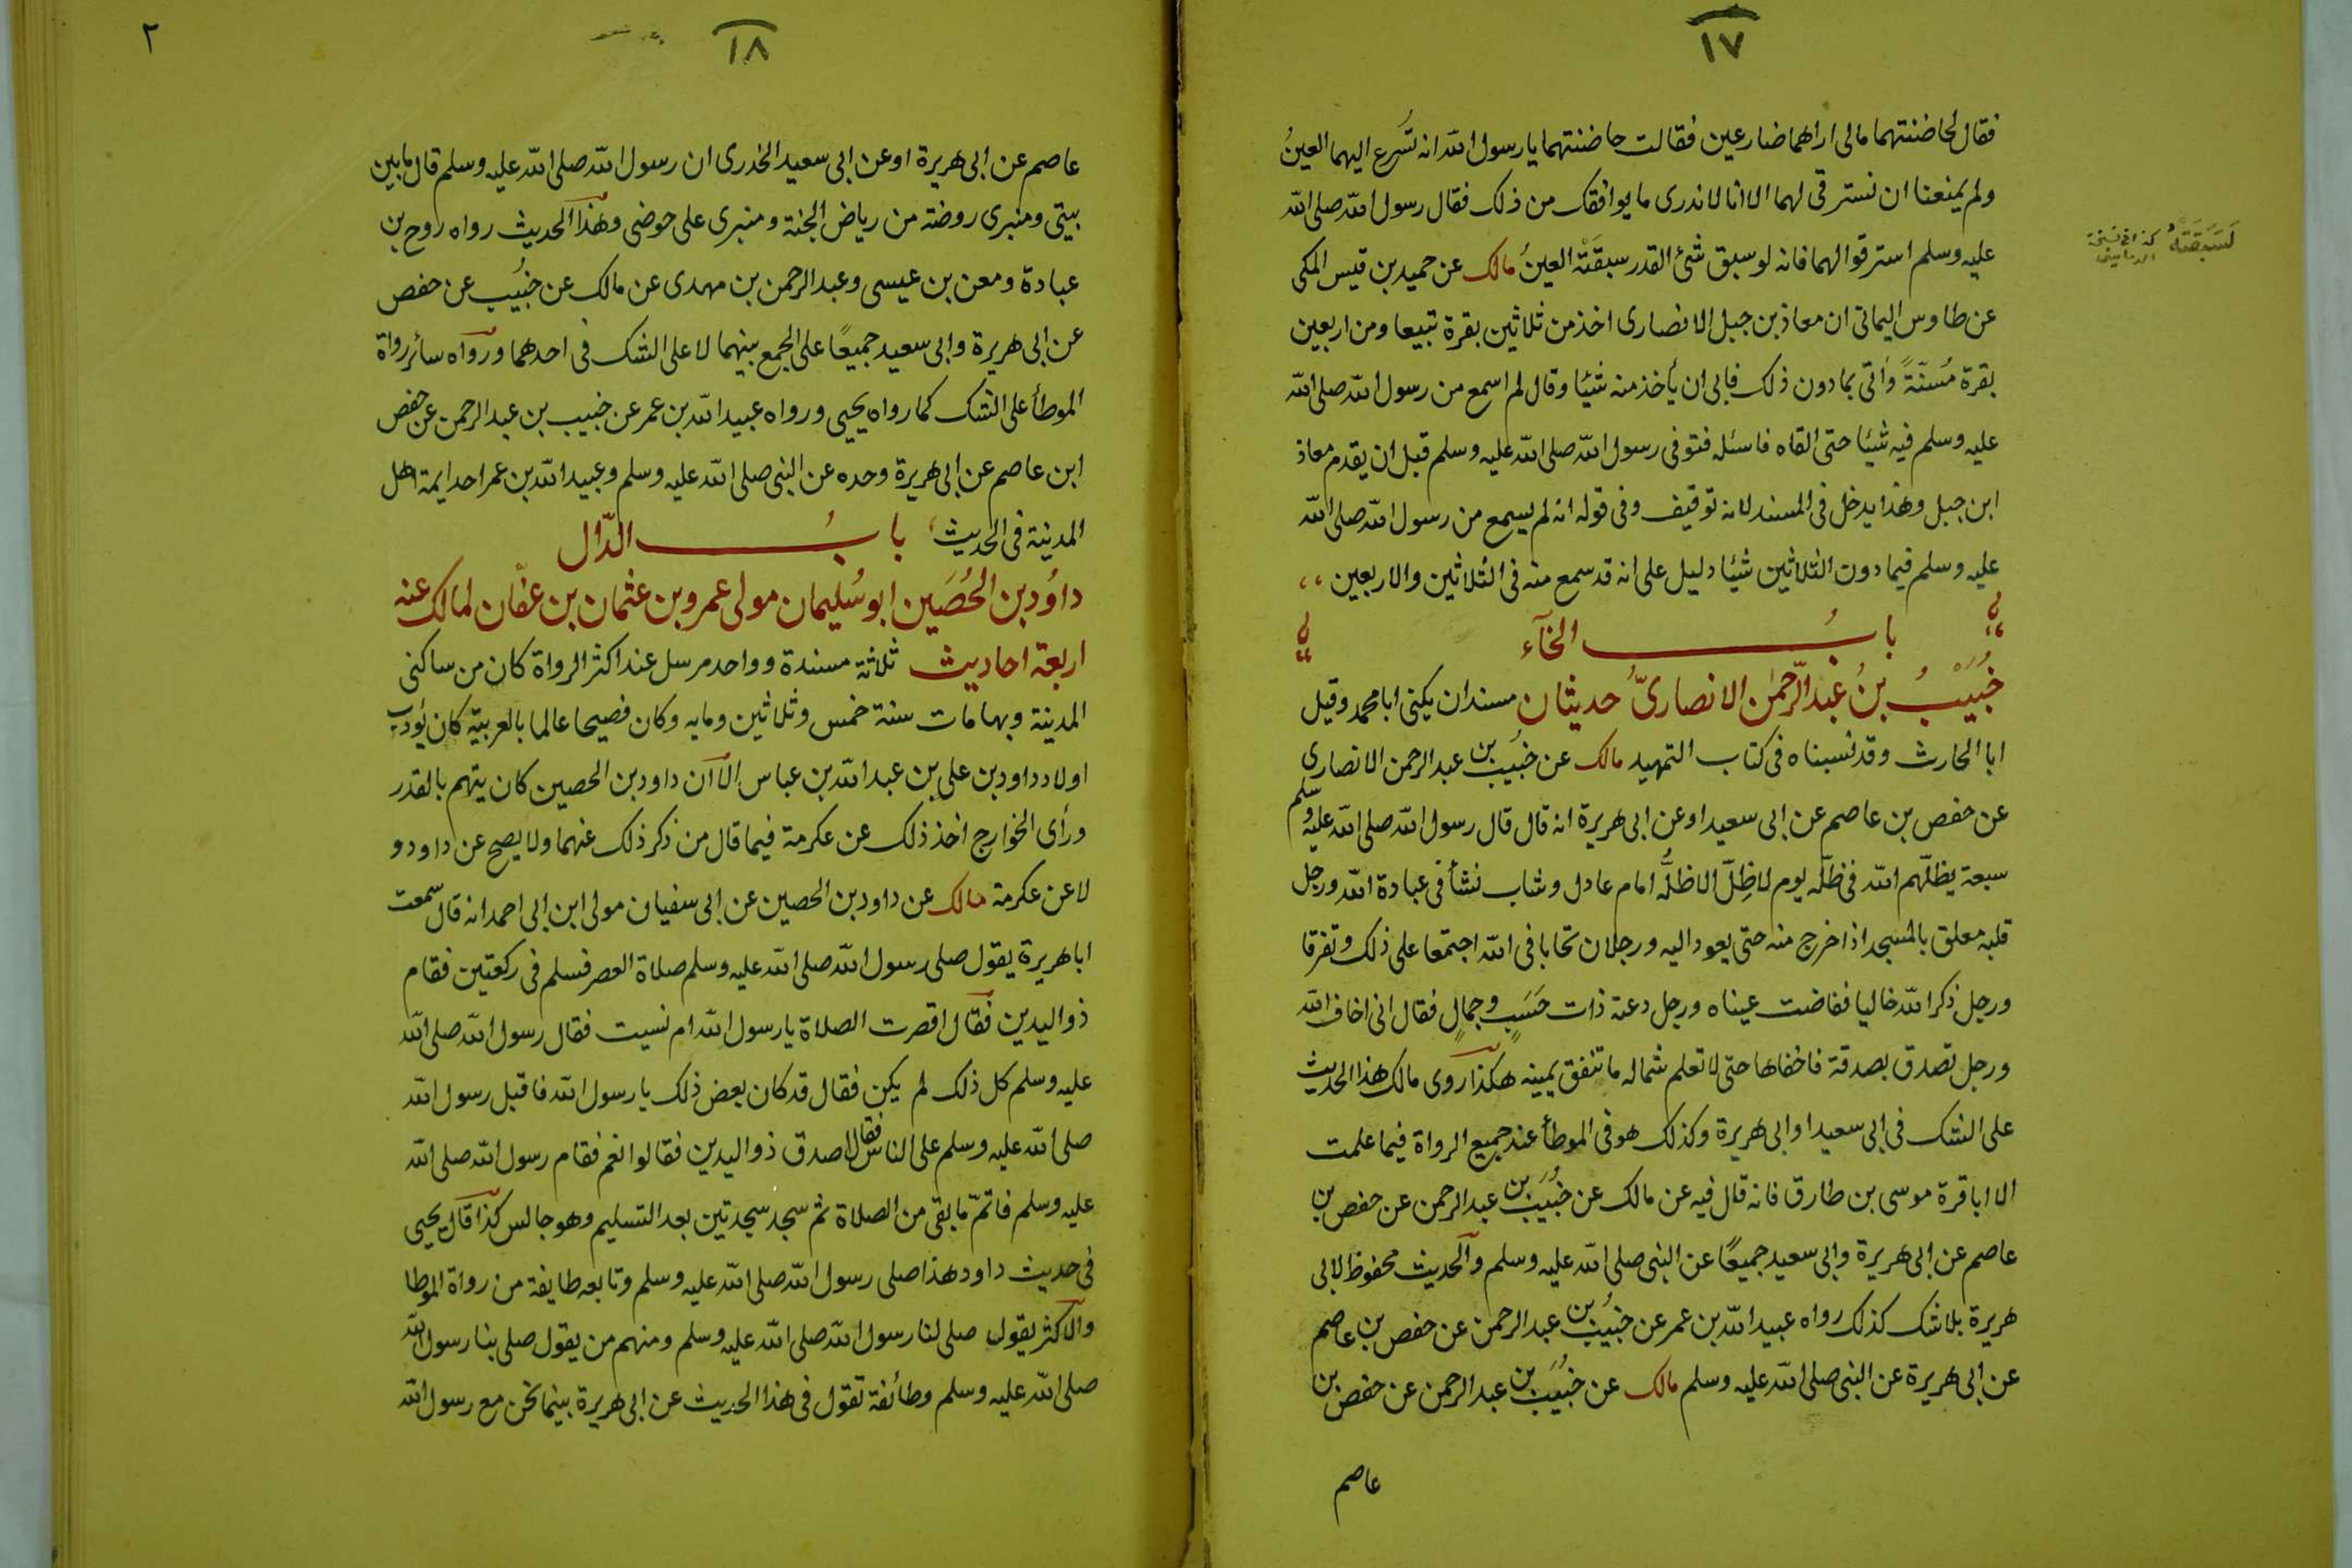 ١٧
فقال لحاضنتهما مالى اراهما ضارعين فقالت حاضنتهما يا رسول الله انه تُسْرع اليهما العينُ
ولم يمنعنا ان نسترقى لهما الا انا لا ندرى ما يوافقك من ذلك فقال رسول الله صلى الله
عليه وسلم استرقوا لهما فانه لو سبق شئ القدر سبقَتْه العينُ مالك عن حميد بن قيس المكى
لَسَبَقَتْهُ كذا فى نسخة
عن طاوس اليمانى ان معاذ بن جبل الانصارى اخذ من ثلاثين بقرة تبيعا ومن اربعين
بقرة مُسنّةً واُتى بما دون ذلك فابى ان يأخذ منه شيئا وقال لم اسمع من رسول الله صلى الله
عليه وسلم فيه شيئا حتى القاه فاسئله فتوفى رسول الله صلى الله عليه وسلم قبل ان يقدم معاذ
ابن جبل وهذا يدخل فى المسند لانه توقيف وفى قوله انه لم يسمع من رسول الله صلى الله
عليه وسلم فيما دون الثلاثين شيئا دليل على انه قد سمع منه فى الثلاثين والاربعين
بابُ الخآء
خُبَيْبُ بنُ عبد الرّحمٰن الانصارىّ حديثان مسندان يكنى ابا محمد وقيل
ابا الحارث وقد نسبناه فى كتاب التمهيد مالك عن خبُيَب بن عبد الرحمن الانصارى
عن حفص بن عاصم عن ابى سعيد او عن ابى هريرة انه قال قال رسول الله صلى الله عليه وسلم
سبعة يظلّهم الله فى ظلّه يوم لا ظِلّ الا ظلّه امام عادل وشاب نشأ فى عبادة الله ورجل
قلبه معلق بالمسجد اذا خرج منه حتى يعود اليه ورجلان تحابا فى الله اجتمعا على ذلك وتفرقا
ورجل ذكر الله خاليا ففاضت عيناه ورجل دعته ذات حَسَبٍ وجمالٍ فقال انى اخاف الله
ورجل تصدق بصدقة فاخفاها حتى لا تعلم شماله ما تنفق يمينه هكذا روى مالك هذا الحديث
على الشك فى ابى سعيد او ابى هريرة وكذلك هو فى الموطأ عند جميع الرواة فيما علمت
الا ابا قرة موسى بن طارق فانه قال فيه عن مالك عن خُبَيَب بن عبد الرحمن عن حفص بن
عاصم عن ابى هريرة وابى سعيد جميعًا عن النبى صلى الله عليه وسلم والحديث محفوظ لابى
هريرة بلا شك كذلك رواه عبيد الله بن عمر عن خبُيَب بن عبد الرحمن عن حفص بن عاصم
عن ابى هريرة عن النبى صلى الله عليه وسلم مالك عن خبُيَب بن عبد الرحمن عن حفص بن
عاصم
١٨
٢
عاصم عن ابى هريرة او عن ابى سعيد الخدرى ان رسول الله صلى الله عليه وسلم قال ما بين
بيتى ومنبرى روضة من رياض الجنة ومنبرى على حوضى وهذا الحديث رواه روح بن
عبادة ومعن بن عيسى وعبد الرحمن بن مهدى عن مالك عن خبُيب عن حفص
عن ابى هريرة وابى سعيد جميعًا على الجمع بينهما لا على الشك فى احدهما ورواه سائر رواة
الموطأ على الشك كما رواه يحيى ورواه عبيد الله بن عمر عن خبيب بن عبد الرحمن عن حفص
ابن عاصم عن ابى هريرة وحده عن النبى صلى الله عليه وسلم وعبيد الله بن عمر احد ايمة اهل
المدينة فى الحديث بابُ الدّال
داوُد بن الحُصَين ابو سُليمان مولى عمرو بن عثمان بن عفّان لمالك عنه
اربعة احاديث ثلاثة مسندة وواحد مرسل عند اكثر الرواة كان من ساكنى
المدينة وبها مات سنة خمس وثلاثين ومايه وكان فصيحا عالما بالعربية كان يُودب
اولاد داود بن على بن عبد الله بن عباس الا ان داود بن الحصين كان يتهم بالقدر
ورأى الخوارج اخذ ذلك عن عكرمة فيما قال من ذكر ذلك عنهما ولا يصح عن داود و
لا عن عكرمة مالك عن داود بن الحصين عن ابى سفيان مولى ابن ابى احمد انه قال سمعت
ابا هريرة يقول صلى رسول الله صلى الله عليه وسلم صلاة العصر فسلم فى ركعتين فقام
ذو اليدين فقال اقصرت الصلاة يا رسول الله ام نسيت فقال رسول الله صلى الله
عليه وسلم كل ذلك لم يكن فقال قد كان بعض ذلك يا رسول الله فاقبل رسول الله
صلى الله عليه وسلم على الناس فقال اصدق ذو اليدين فقالوا نعم فقام رسول الله صلى الله
عليه وسلم فاتمّ ما بقى من الصلاة ثم سجد سجدتين بعد التسليم وهو جالس كذا قال يحيى
فى حديث داود هذا صلى رسول الله صلى الله عليه وسلم وتابعه طايفة من رواة الموطا
والاكثر يقول صلى لنا رسول الله صلى الله عليه وسلم ومنهم من يقول صلى بنا رسول الله
صلى الله عليه وسلم وطائفة تقول فى هذا الحديث عن ابى هريرة بينما نحن مع رسول الله